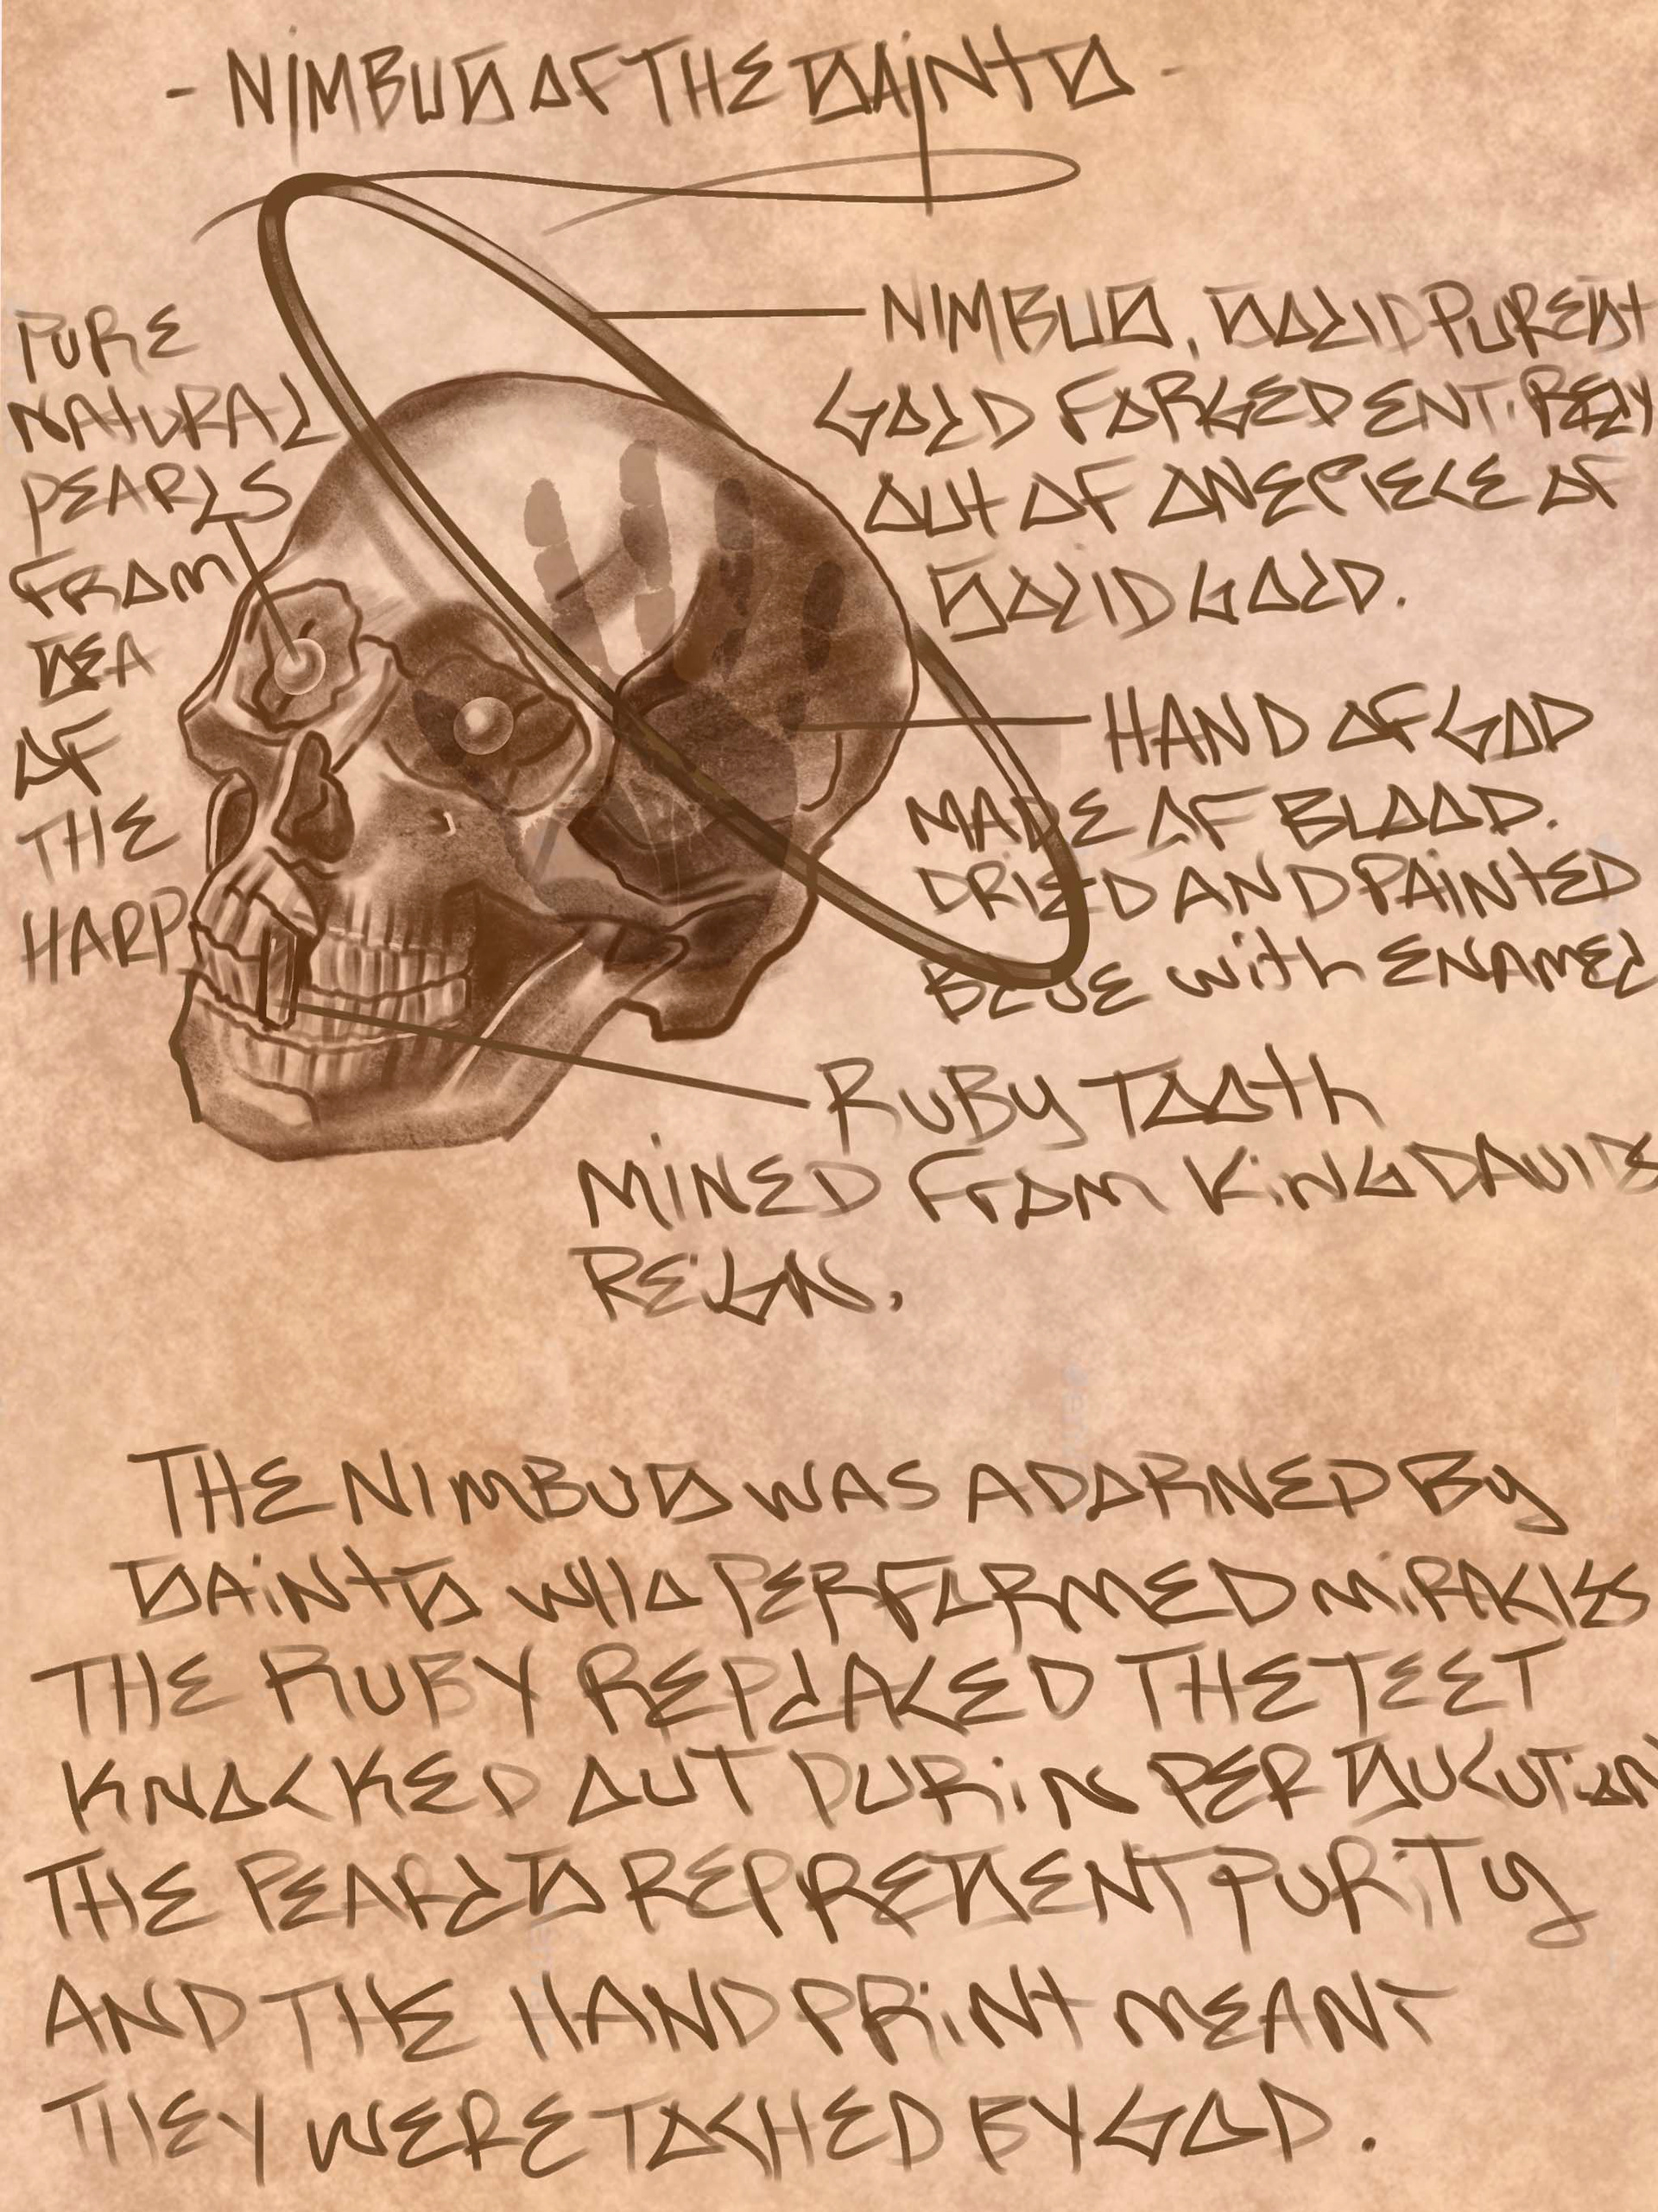 - NIMBUS OF THE SAINTS -
PURE
NATURAL
PEARLS
FROM
SEA
OF
THE
HARP
NIMBUS, SOLID PUREST
GOLD FORGED ENTIRELY
OUT OF ONE PIECE OF
SOLID GOLD.
HAND OF GOD
MADE OF BLOOD.
DRIED AND PAINTED
BLUE with ENAMEL
RUBY TOOth
MINED FROM KING DAVIDS
REIGN.
THE NIMBUS WAS ADORNED By
SAINTS WHO PERFORMED MIRACLES
THE RUBY REPLACED THE TEET
KNOCKED OUT DURIN PERSUCUTION
THE PEARLS REPRESENT PURITY
AND THE HAND PRINT MEANT
THEY WERE TOCHED BY GOD.